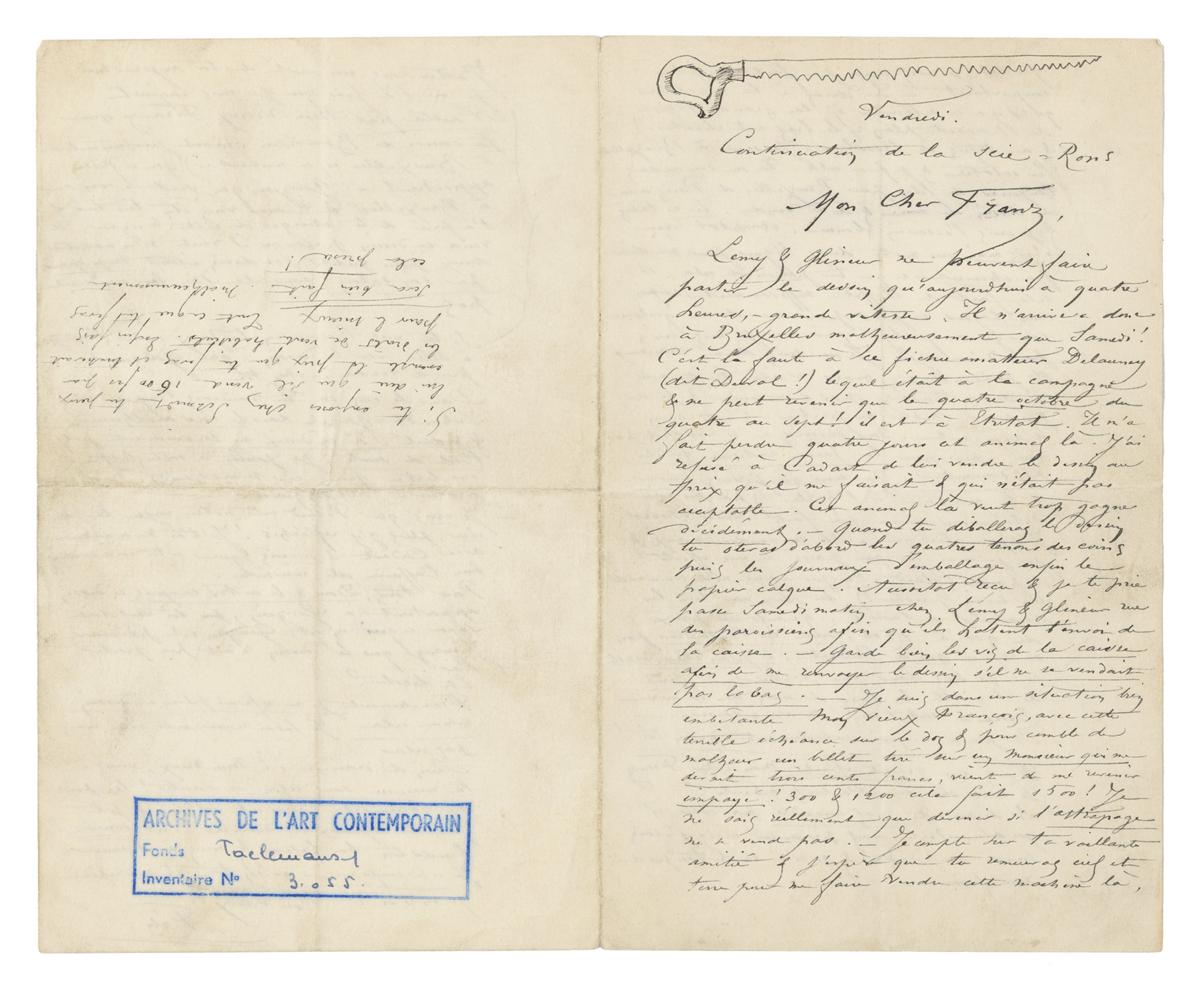 Vendredi.
Continuation de la scie - Rops
Mon Cher Franz,
Lemy & Glineur ne peuvent faire
partir le dessin qu'aujourdhui à quatre
heures, - grande vitesse. Il n'arrive donc
à Bruxelles malheureusement que Samedi!
C'est la faute à ce fichu amateur Delauney
(dit Duval!) lequel était à la campagne
& ne peut revenir que le quatre octobre du
quatre au sept! il est à Etretat. Il m'a
fait perdre quatre jours cet animal là. J'ai
refusé à Cadart de lui vendre le dessin au
prix qu'il me faisait & qui n'était pas
acceptable. Cet animal là veut trop gagner
décidément. - Quand tu déballeras le dessin
tu oteras d'abord les quatres tenons des coins
puis les journaux d'emballage enfin le
papier calque. Aussitot recu & je te prie
passe Samedi matin chez Lemy & Glineur rue
des paroissiens afin qu'ils hatent l'envoi de
la caisse. - Garde bien les vis de la caisse
afin de me renvoyer le dessin s'il ne se vendait
pas là bas. - Je suis dans une situation bien
embêtante mon vieux François, avec cette
terrible échéance sur le dos & pour comble de
malheur un billet tiré sur un monsieur qui me
devait trois cents francs, vient de me revenir
impayé! 300 & 1200 cela fait 1500! Je
ne sais réellement que devenir si l'attrapage
ne se vend pas. - Je compte sur ta vaillante
amitié & j'espère que tu remueras ciel et
terre pour me faire vendre cette machine là,
Si tu exposes chez Sermon tu peux
lui dire que s'il vend 1600 frs par
exemple le prix que tu
les droits de vente habituels. Enfin fais
pour le mieux. Tout ce que tu feras
sera bien fait. Malheureusement
cela presse!
ARCHIVES DE L'ART CONTEMPORAIN
Fonds Taelemans
Inventaire N° 3.055.